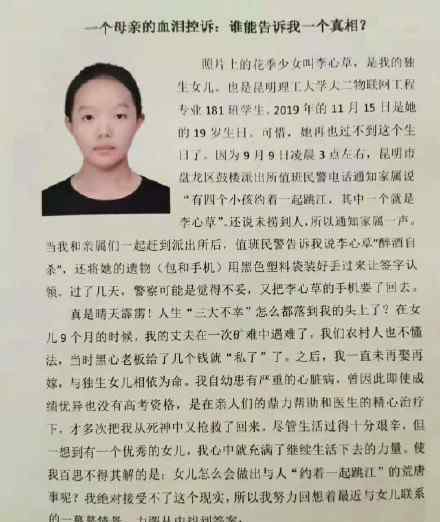 一个母亲的血泪控诉：谁能告诉我一个真相？
照片上的花季少女叫李心草，是我的独
生女儿，也是昆明理工大学大二物联网工程
专业 181 班学生，2019 年的 11 月 15 日是她
的 19 岁生日。可惜，她再也过不到这个生
日了。因为 9 月 9 日凌晨 3 点左右，昆明市
盘龙区鼓楼派出所值班民警电话通知家属说
“有四个小孩约着一起跳江，其中一个就是
李心草”，还说未捞到人，所以通知家属一声。
当我和亲属们一起赶到派出所后，值班民警告诉我说李心草“醉酒自
杀”，还将她的遗物（包和手机）用黑色塑料袋装好丢过来让签字认
领。过了几天，警察可能是觉得不妥，又把李心草的手机要了回去。
真是晴天霹雳！人生“三大不幸”怎么都落到我的头上了？在女
儿 9 个月的时候，我的丈夫在一次矿难中遇难了。我们农村人也不懂
法，当时黑心老板给了几个钱就“私了”了。之后，我一直未再娶再
嫁，与独生女儿相依为命。我自幼患有严重的心脏病，曾因此即使成
绩优异也没有高考资格，是在亲人们的鼎力帮助和医生的精心治疗
下，才多次把我从死神中又抢救了回来。尽管生活过得十分艰辛，但
一想到有一个优秀的女儿，我心中就充满了继续生活下去的力量。使
我百思不得其解的是：女儿怎么会做出与人“约着一起跳江”的荒唐
事呢？我绝对接受不了这个现实，所以我努力回想着最近与女儿联系
的一幕幕情景，力图从中找到答案。